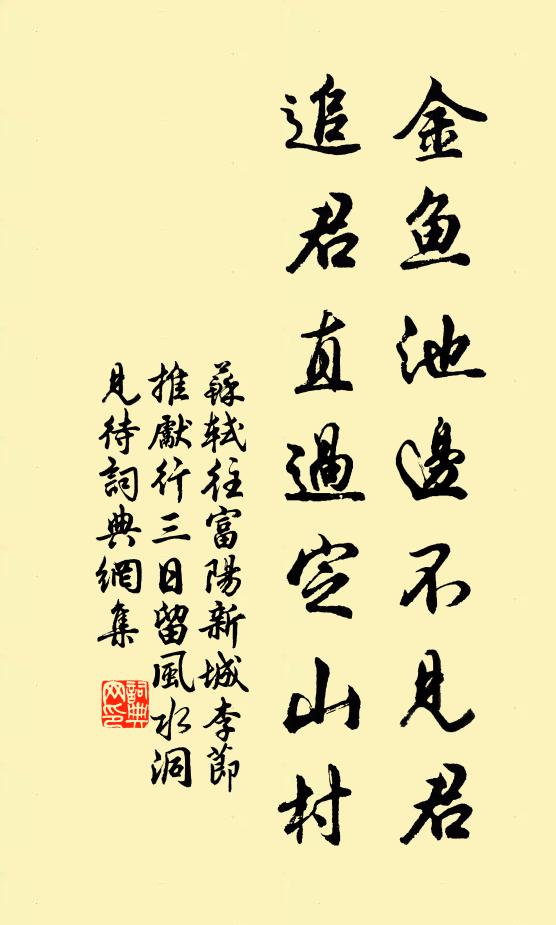 金鱼池邊不見君
追君直過定山村
蘇軾往富陽新城李節
推獻行三日留風水洞
見待詞典網集
詞典
网印